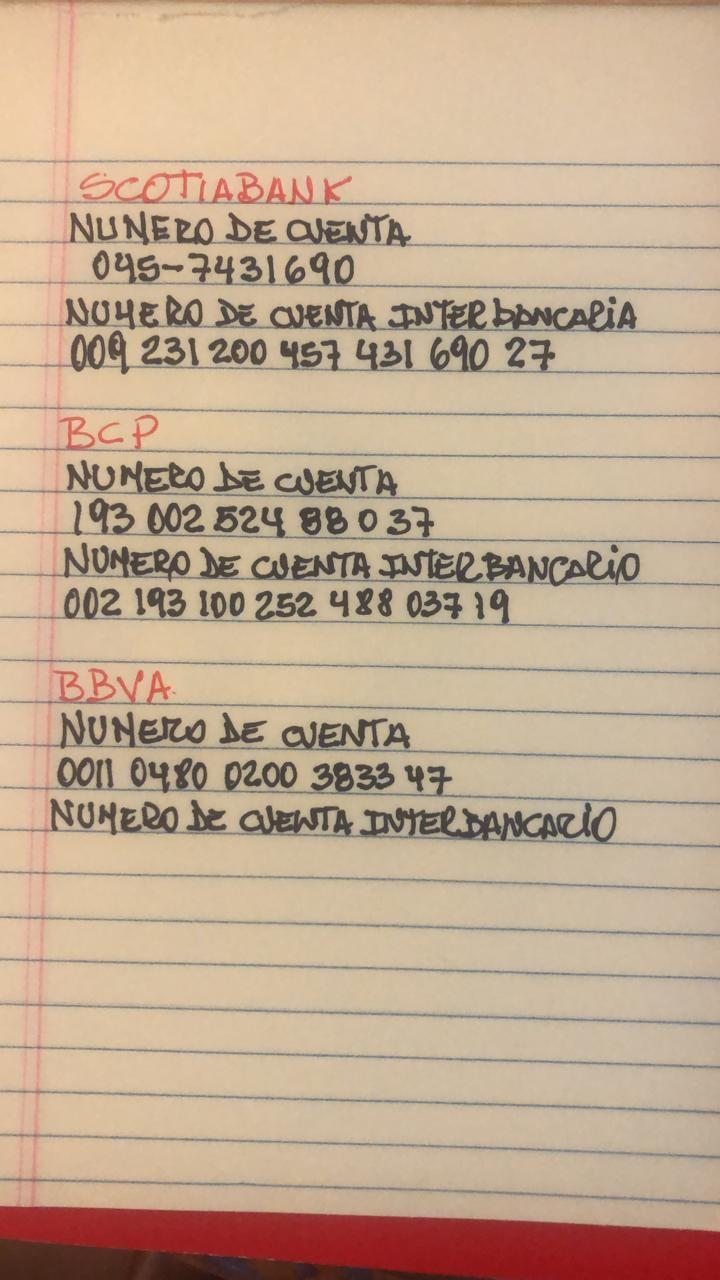 SCOTIABANK
NUMERO DE CUENTA
045-7431690
NUMERO DE CUENTA INTERBANCARIA
009 231 200 457 431 690 27
BCP
NUMERO DE CUENTA
193 002 524 88 0 37
NUMERO DE CUENTA INTERBANCARIO
002 193 100 252 488 037 19
BBVA.
NUMERO DE CUENTA
0011 0480 0200 3833 47
NUMERO DE CUENTA INTERBANCARIO